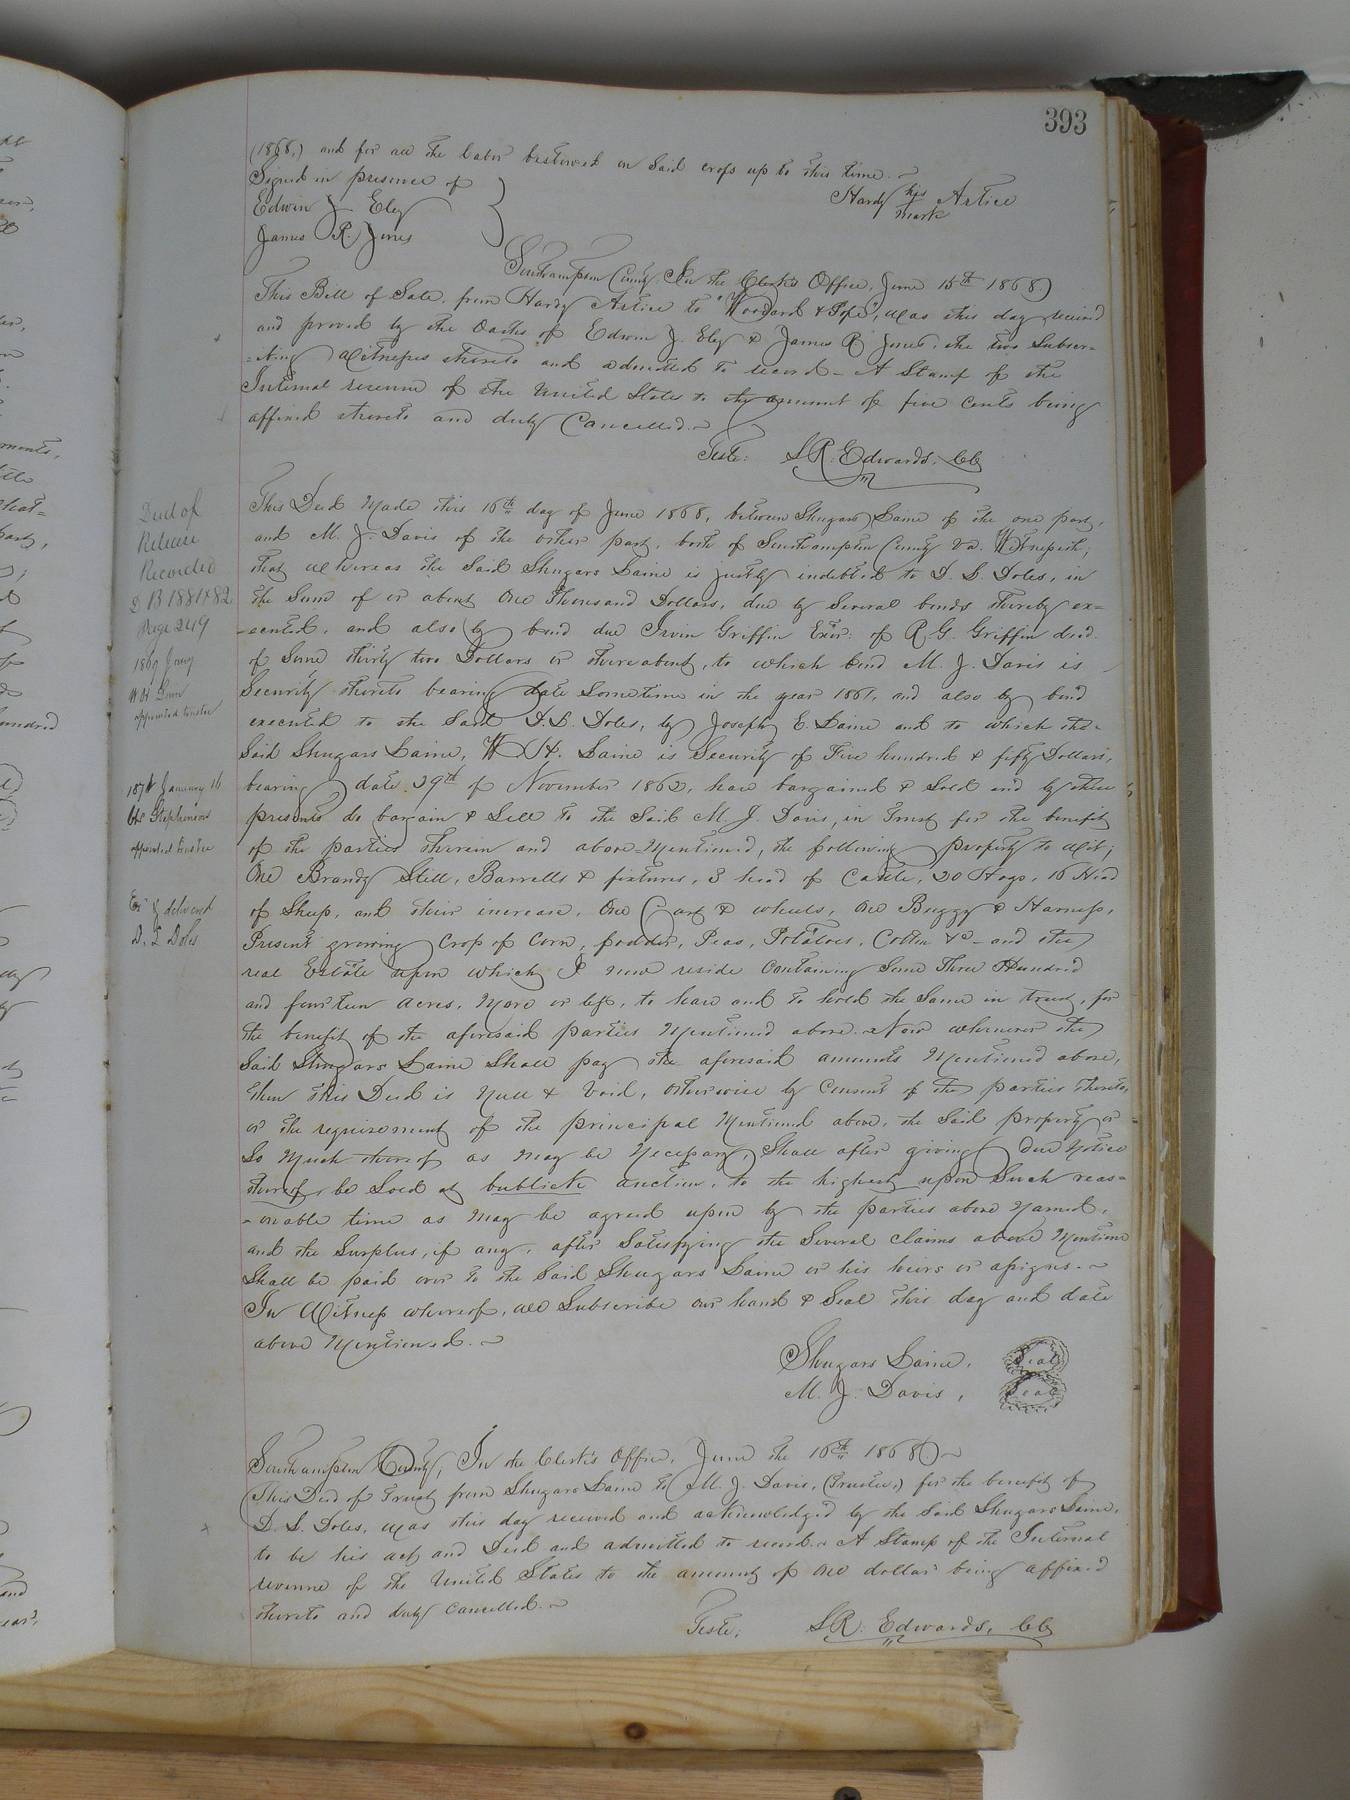 393
(1868,) and for all the labor bestowed on Said crops up to this time.
Signed in presence of
Edwin J. Eley
James R. Jones
Hardy his mark Artice
Southampton County, In the Clerk's Office, June 15th 1868,)
This Bill of Sale, from Hardy Artice to "Woodard & Pope", was this day received
and proved by the Oaths of Edwin J. Eley & James R. Jones, the two Subscri=
=bing Witnesses thereto and admitted to record - A Stamp of the
Internal revenue of the United States to the amount of five cents being
affixed thereto and duly Cancelled.
Teste: L.R. Edwards, CC
This Deed Made this 16th day of June 1868, between Shugars Laine of the one part,
and M. J. Davis of the other part, both of Southampton County Va. Witnesseth,
that whereas the Said Shugars Laine is justly indebted to D. L. Doles, in
the Sum of or about One Thousand Dollars, due by Several bonds thereby ex=
=ecuted, and also by bond due Irvin Griffin Exor: of R. G. Griffin decd.
of Some thirty two Dollars or thereabout, to which bond M. J. Davis is
Security thereto bearing date Sometime in the year 1861, and also by bond
executed to the Said D. L. Doles, by Joseph E. Laine and to which the
Said Shugars Laine, W. H. Laine is Security of Five hundred & fifty Dollars,
bearing date 29th of November 1862, have bargained & Sold and by these
presents do bargain & Sell to the Said M. J. Davis, in Trust for the benefit
of the parties therein and above Mentioned, the following property to Wit;
One Brandy Still, Barrells & fixtures, 3 head of Cattle, 20 Hogs, 16 Head
of Sheep, and their increase, One Cart & wheels, One Buggy & Harness,
Present growing Crop of Corn, fodder, Peas, Potatoes, Cotton &c - and the
real Estate upon which I now reside Containing Some Three Hundred
and fourteen acres, More or less, to have and to hold the Same in trust, for
the benefit of the aforesaid parties Mentioned above. Now whenever the
Said Shugars Laine Shall pay the aforesaid amounts Mentioned above,
then this Deed is Null & Void, otherwise by Consent of the parties thereto,
or the requirement of the principal Mentioned above, the Said property or
So Much thereof as may be Necessary, Shall after giving due Notice
thereof, be Sold at bublick auction, to the highest upon Such reas=
=onable time as May be agreed upon by the parties above Named,
and the Surplus, if any, after Satisfying the Several Claims above Mention
Shall be paid over to the Said Shugars Laine or his heirs or assigns.
In Witness whereof, we Subscribe our hand & Seal this day and date
above Mentioned.
Shugars Laine, Seal
M. J. Davis, Seal
Southampton County, In the Clerk's Office, June the 16th 1868,)
This Deed of Trust from Shugars Laine to M. J. Davis, (Trustee,) for the benefit of
D. L. Doles, was this day received and acknowledged by the Said Shugars Laine,
to be his act and Deed and admitted to record. A Stamp of the Internal
revenue of the United States to the amount of one dollar being affixed
thereto and duly Cancelled.
Teste, L.R. Edwards, CC
Deed of
Release
Recorded
D B 1881 & 82
Page 249
1869 Jany
appointed trustee
January 16
Stephenson
appointed trustee
delivered
D. L. Doles